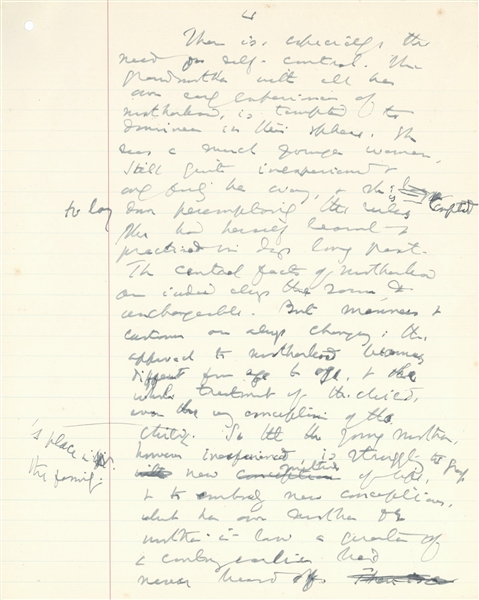 4
There is, especially, the
need for self-control. The
grandmother with all her
own early experiences of
motherhood, is tempted to
domineer in this sphere. She
sees a much younger woman,
still quite inexperienced &
feeling her way, & she is tempted
to lay down peremptorily the rules
she had herself learnt &
practised in days long past.
The central facts of motherhood
are indeed always the same, &
unchangeable. But manners &
customs are always changing: the
approach to motherhood becomes
different from age to age, & the
whole treatment of the child,
even the very conception of the
child's place in
the family.
So that the young mother,
however inexperienced, is struggling to grasp
new of life,
& to embody new conceptions,
what her own mother or
mother-in-law a quarter of
a century earlier had
never heard of.